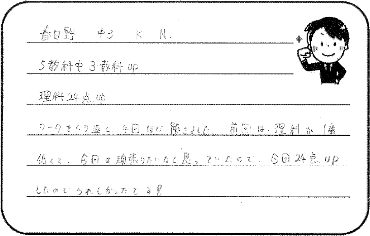 春日野 中3 K.M.
5教科中3教科up
理科24点up
ワークをくり返し、今回も 頑張りました。前回は、理科が1番
低くて、今回は頑張りたいなと思っていたので、今回24点up
したのでうれしかったです